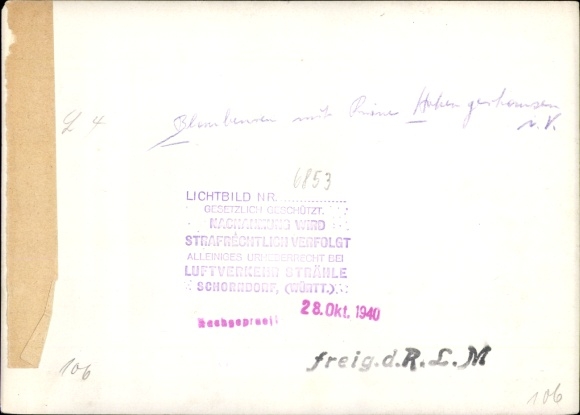 L 4
Blaubeuren mit Ruine Hohengerhausen
i. V.
6853
LICHTBILD NR. ................
GESETZLICH GESCHÜTZT.
NACHAHMUNG WIRD
STRAFRECHTLICH VERFOLGT
ALLEINIGES URHEBERRECHT BEI
LUFTVERKEHR STRÄHLE
SCHORNDORF, (WÜRTT.)
28. Okt. 1940
Nachgeprüft
freig. d. R. L. M
106
106